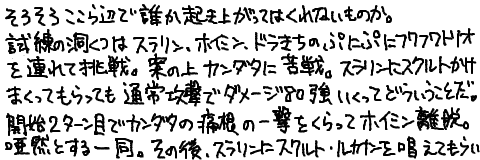 そろそろここら辺で誰か起き上がってはくれないものか。
試練の洞くつはスラリン、ホイミン、ドラきちのぷにぷにフワフワトリオ
を連れて挑戦。案の上カンダタに苦戦。スラリンにスクルトかけ
まくってもらっても通常攻撃でダメージ80強いくってどういうことだ。
開始2ターン目でカンダタの痛恨の一撃をくらってホイミン離脱。
唖然とする一同。その後、スラリンにスクルト・ルカナンを唱えてもらい